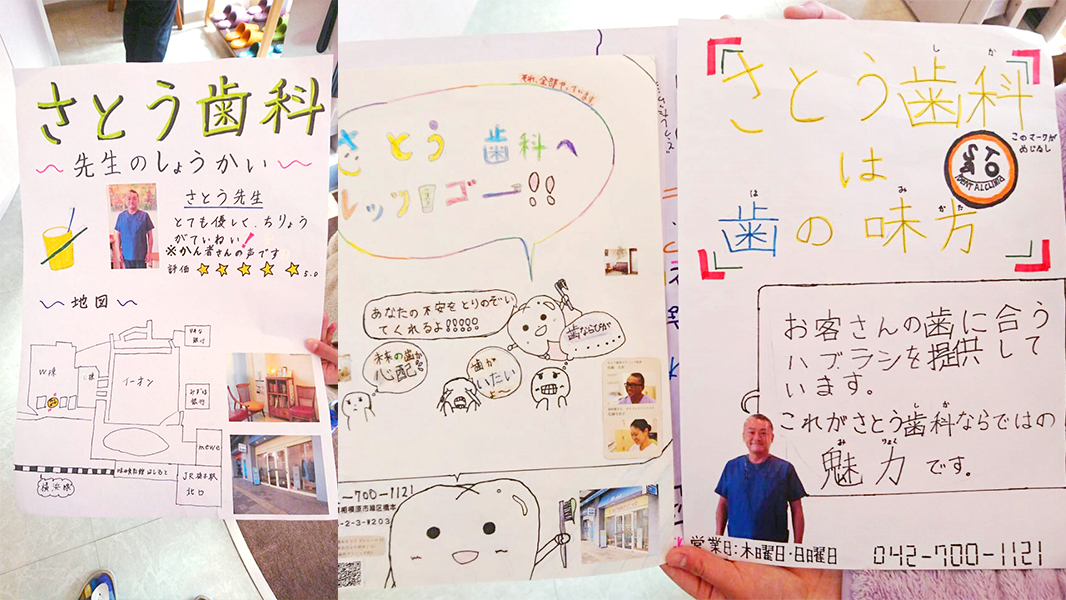 さとう歯科
先生のしょうかい
さとう先生
とても優しく、ちりょう
がていねい!
※かん者さんの声です
評価 ☆☆☆☆☆ 5.0
地図
W棟
イーオン
みずほ
銀行
mewe
JR橋本駅
北口
横浜線
それ、全部やっています
さとう歯科へ
レッツゴー!!
あなたの不安をとりのぞい
てくれるよ!!!!!
歯ならびが
未来の歯が
心配
歯が
いたい
-700-1121
相模原市緑区橋本
-2-3-W203
しか
さとう歯科
は
はみかた
歯の味方
このマークが
めじるし
DENTAL CLINIC
お客さんの歯に合う
ハブラシを提供して
います。
しか
これがさとう歯科ならではの
みりょく
魅力です。
営業日:木曜日・日曜日
042-700-1121